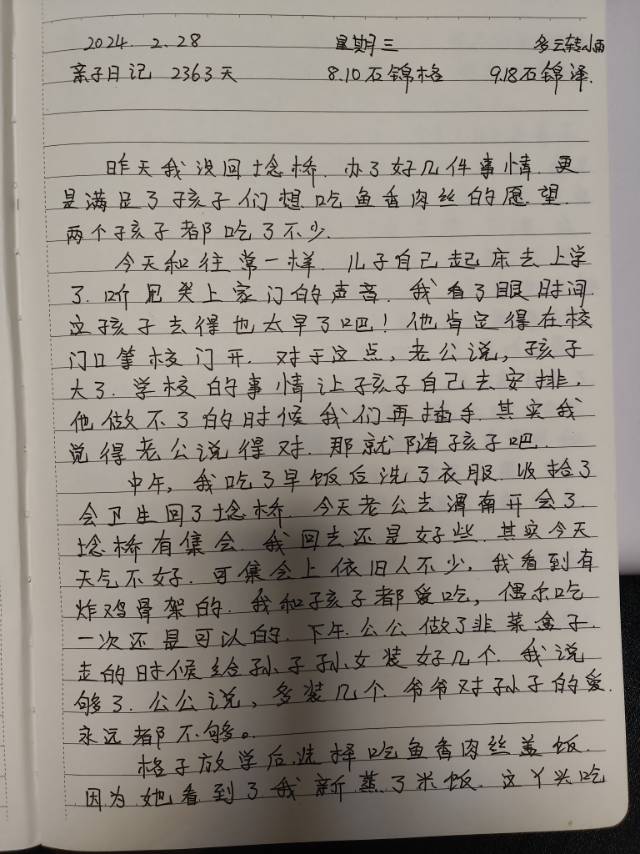 2024.2.28 星期三 多云转小雨
亲子日记 2363天 8.10石锦格 9.18石锦泽.
昨天我没回埝桥.办了好几件事情.更
是满足了孩子们想吃鱼香肉丝的愿望.
两个孩子都吃了不少.
今天和往常一样.儿子自己起床去上学
了.听见关上家门的声音.我看了眼时间
这孩子去得也太早了吧!他肯定得在校
门口等校门开.对于这点,老公说,孩子
大了.学校的事情让孩子自己去安排,
他做不了的时候我们再插手.其实我
觉得老公说得对.那就随孩子吧.
中午,我吃了早饭后洗了衣服.收拾了
会卫生回了埝桥.今天老公去渭南开会了.
埝桥有集会.我回去还是好些.其实今天
天气不好.可集会上依旧人不少,我看到有
炸鸡骨架的.我和孩子都爱吃,偶尔吃
一次还是可以的.下午.公公做了韭菜盒子.
走的时候给孙子孙女装好几个.我说
够了.公公说,多装几个.爷爷对孙子的爱.
永远都不够。
格子放学后选择吃鱼香肉丝盖饭.
因为她看到了我新蒸了米饭.这丫头吃